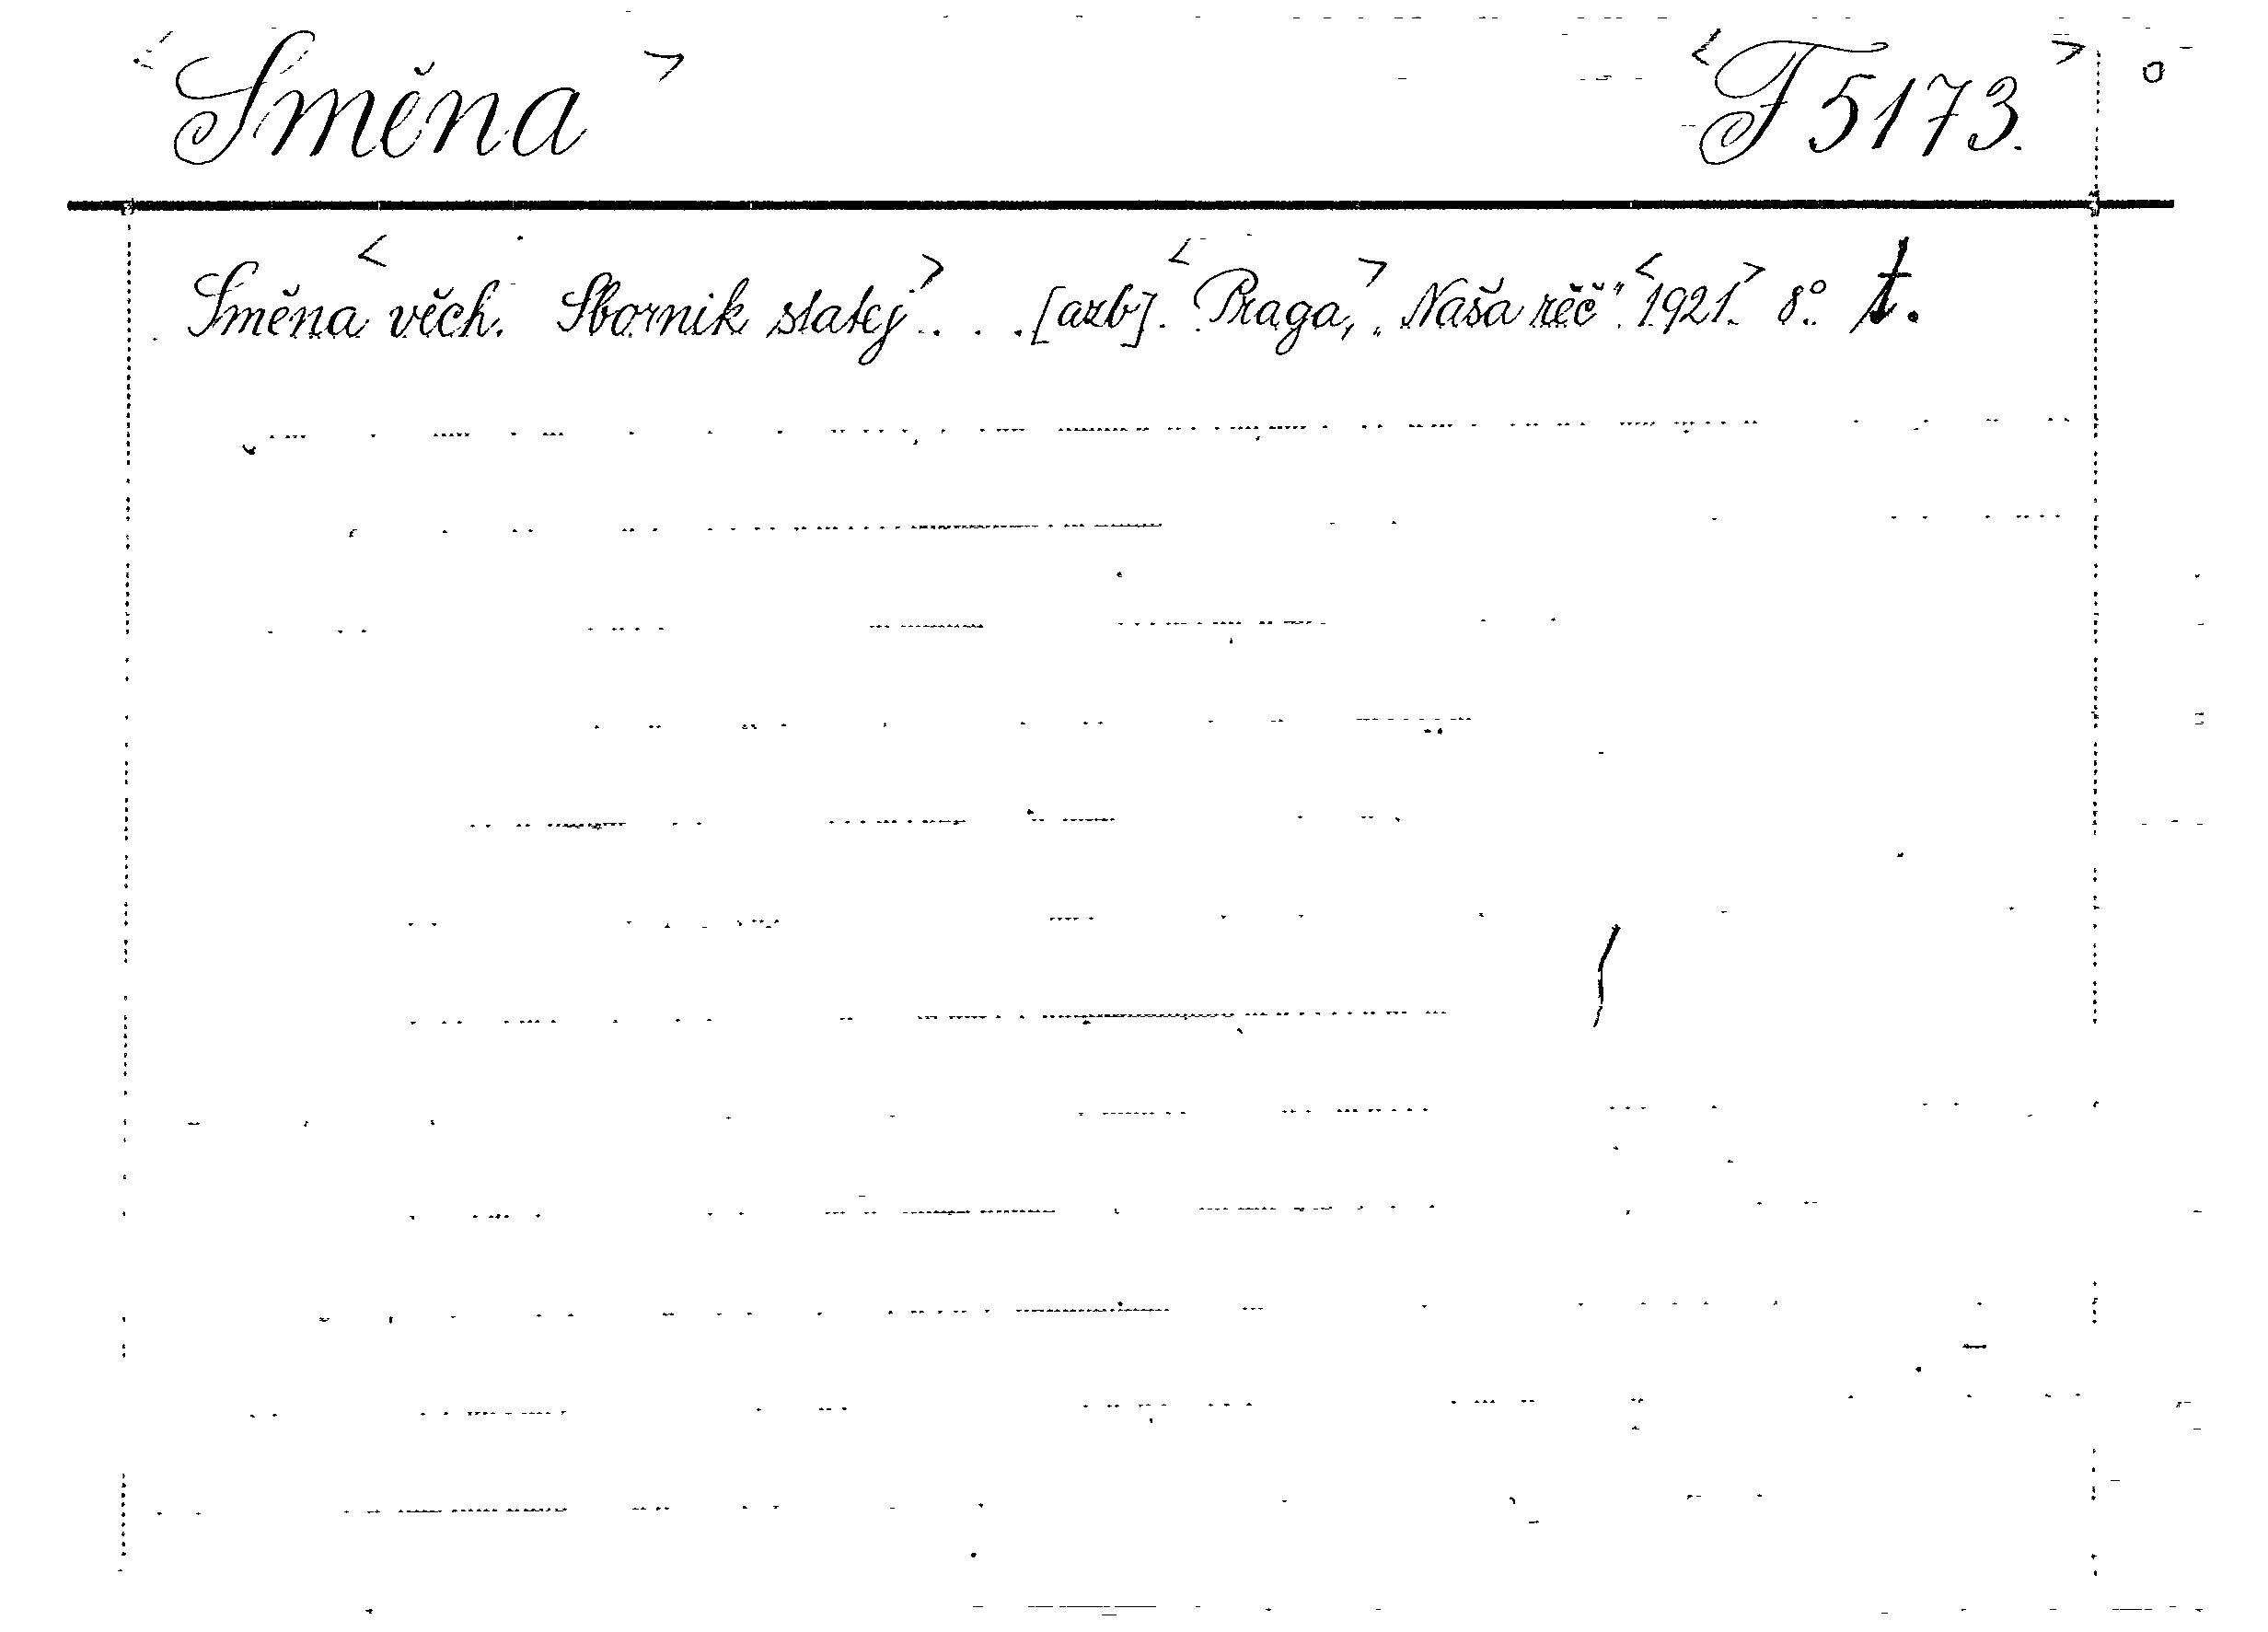 <Směna> <F 5173.> o
Směna <věch. Sbornik statej>. . . [azb]. <Praga,> „Naša rěč". <1921.> 8°. t.